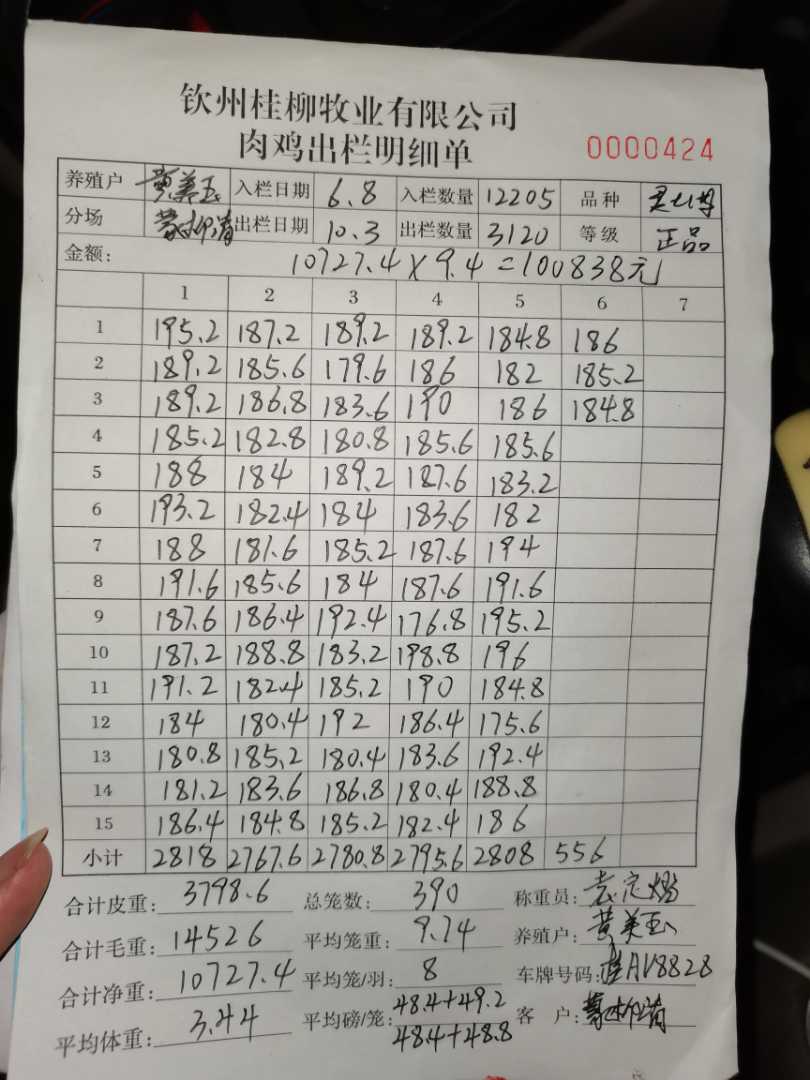 钦州桂柳牧业有限公司
肉鸡出栏明细单 0000424
养殖户 黄美玉 入栏日期 6.8 入栏数量 12205 品种
分场 出栏日期 10.3 出栏数量 3120 等级 正品
金额: 10727.4×9.4=100838元
1 2 3 4 5 6 7
1 195.2 187.2 189.2 189.2 184.8 186
2 189.2 185.6 179.6 186 182 185.2
3 189.2 186.8 183.6 190 186 184.8
4 185.2 182.8 180.8 185.6 185.6
5 188 184 189.2 187.6 183.2
6 193.2 182.4 184 183.6 182
7 188 181.6 185.2 187.6 194
8 191.6 185.6 184 187.6 191.6
9 187.6 186.4 192.4 176.8 195.2
10 187.2 188.8 183.2 198.8 196
11 191.2 182.4 185.2 190 184.8
12 184 180.4 192 186.4 175.6
13 180.8 185.2 180.4 183.6 192.4
14 181.2 183.6 186.8 180.4 188.8
15 186.4 184.8 185.2 182.4 186
小计 2818 2767.6 2780.8 2795.6 2808 556
合计皮重: 3798.6 总笼数: 390 称重员:
合计毛重: 14526 平均笼重: 9.74 养殖户: 黄美玉
合计净重: 10727.4 平均笼/羽: 8 车牌号码: 桂AV8828
平均体重: 3.44 平均磅/笼: 48.4+49.2 客户:
48.4+48.8